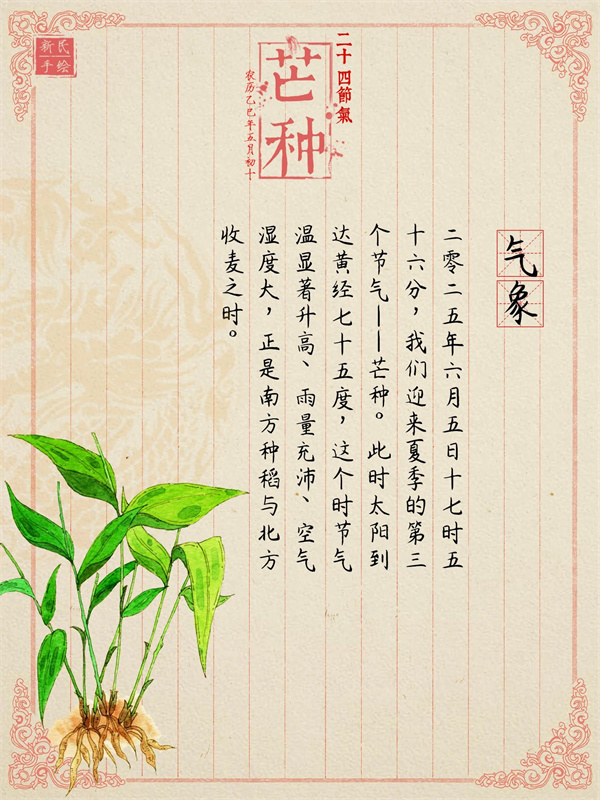 新民
手绘
二十四節氣
芒种
农历乙巳年五月初十
气象
二零二五年六月五日十七时五
十六分，我们迎来夏季的第三
个节气——芒种。此时太阳到
达黄经七十五度，这个时节气
温显著升高、雨量充沛、空气
湿度大，正是南方种稻与北方
收麦之时。